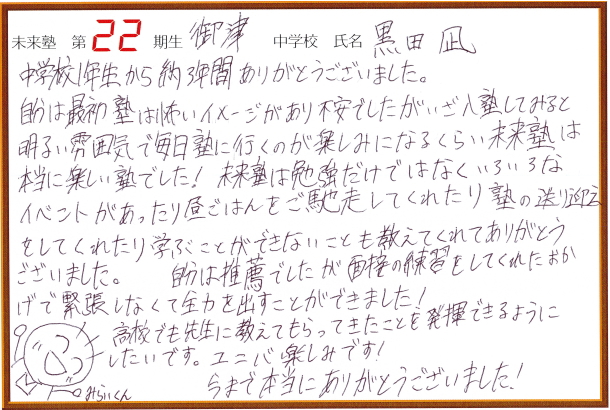 未来塾 第22期生 御津 中学校 氏名 黒田 凪
中学校1年生から約3年間ありがとうございました。
自分は最初塾は怖いイメージがあり不安でしたがいざ入塾してみると
明るい雰囲気で毎日塾に行くのが楽しみになるくらい未来塾は
本当に楽しい塾でした！未来塾は勉強だけではなくいろいろな
イベントがあったり昼ごはんをご馳走してくれたり塾の送り迎え
をしてくれたり学ぶことができないことも教えてくれてありがとう
ございました。 自分は推薦でしたが面接の練習をしてくれたおか
げで緊張しなくて全力を出すことができました！
高校でも先生に教えてもらってきたことを発揮できるように
したいです。ユニバ楽しみです！
みらいくん
今まで本当にありがとうございました！